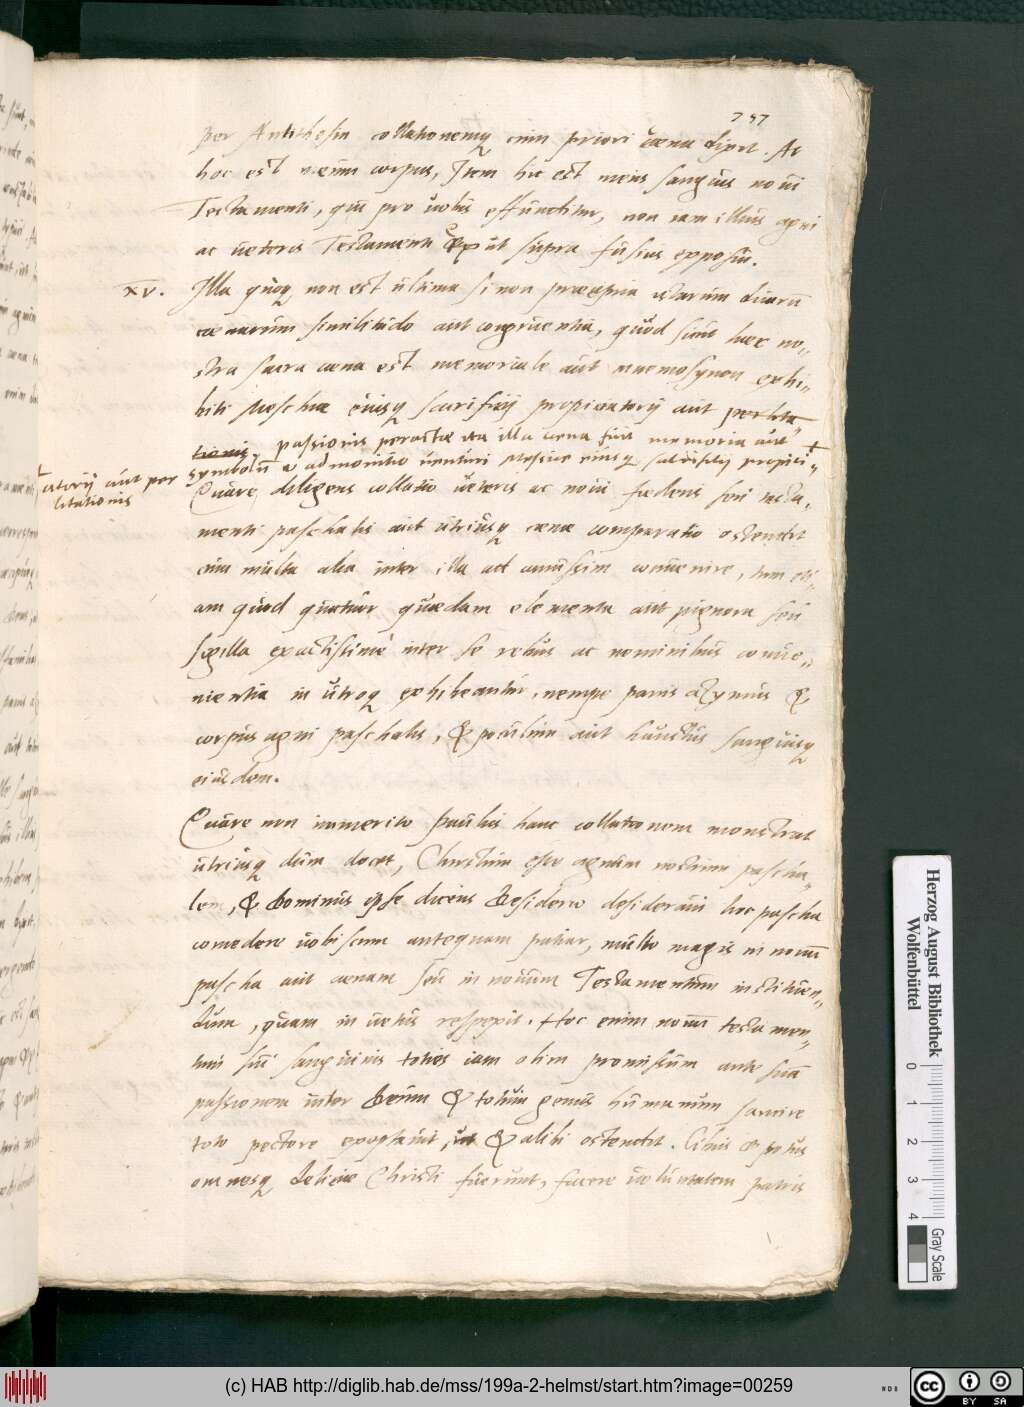 257
per Antithesin collationemq cum priori caena dixit. Ac
hoc est meum corpus, Item hic est meus sanguis noui
Testamenti, qui pro uobis effunditur, non iam illius agni
ac ueteris Testamenti ut supra fusius exposui.
XV. Illa quoq non est ultima si non praecipua istarum duarum
caenarum similitudo aut congruentia, quod sicut haec no-
stra sacra caena est memoriale aut mnemosynon exhi-
biti Meschiae eiusq sacrificij propiciatorij aut perlita-
tionis, passionis peractae ita illa caena fuit memoria aut
symbolū & admonitio uenturi Messiae eiusq propiti-
atorij aut per
litationis
Quare diligens collatio ueteris ac noui foederis seu testa-
menti paschalis aut utriusq caenae comparatio ostendit
cum multa alia inter illa ad amussim conuenire, tum eti-
am quod quatuor quaedam elementa aut pignora seu
sigilla exactissimè inter se rebus ac nominibus conue-
nientia in utroq exhibeantur, nempe panis azymus &
corpus agni paschalis, & poculum aut haustus sanguisq
eiusdem.
Quare non immerito Paulus hanc collationem monstrat
utriusq dum docet, Christum esse agnum nostrum pascha-
lem, & Dominus ipse dicens Desiderio desideraui hoc pascha
comedere uobiscum antequam patiar, multo magis in nouum
pascha aut caenam seu in nouum Testamentum instituen-
dum, quam in uetus respexit. Hoc enim nouū testamen-
tum sui sanguinis toties iam olim promissum ante suā
passionem inter Deum & totum genus humanum sancire
toto pectore exoptauit, ut & alibi ostendit. Cibus & potus
omnesq deliciae Christi fuerunt, facere uoluntatem patris
Herzog August Bibliothek
Wolfenbüttel
0 1 2 3 4
Gray Scale
(c) HAB http://diglib.hab.de/mss/199a-2-helmst/start.htm?image=00259
cc BY SA